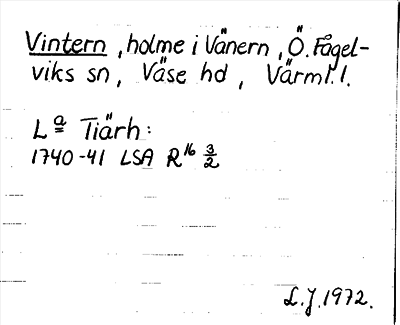 Vintern, holme i Vänern, Ö. Fågel-
viks sn, Väse hd, Värml. l.
Lª Tiärh:
1740-41 LSA R16 3/2
L.J. 1972.